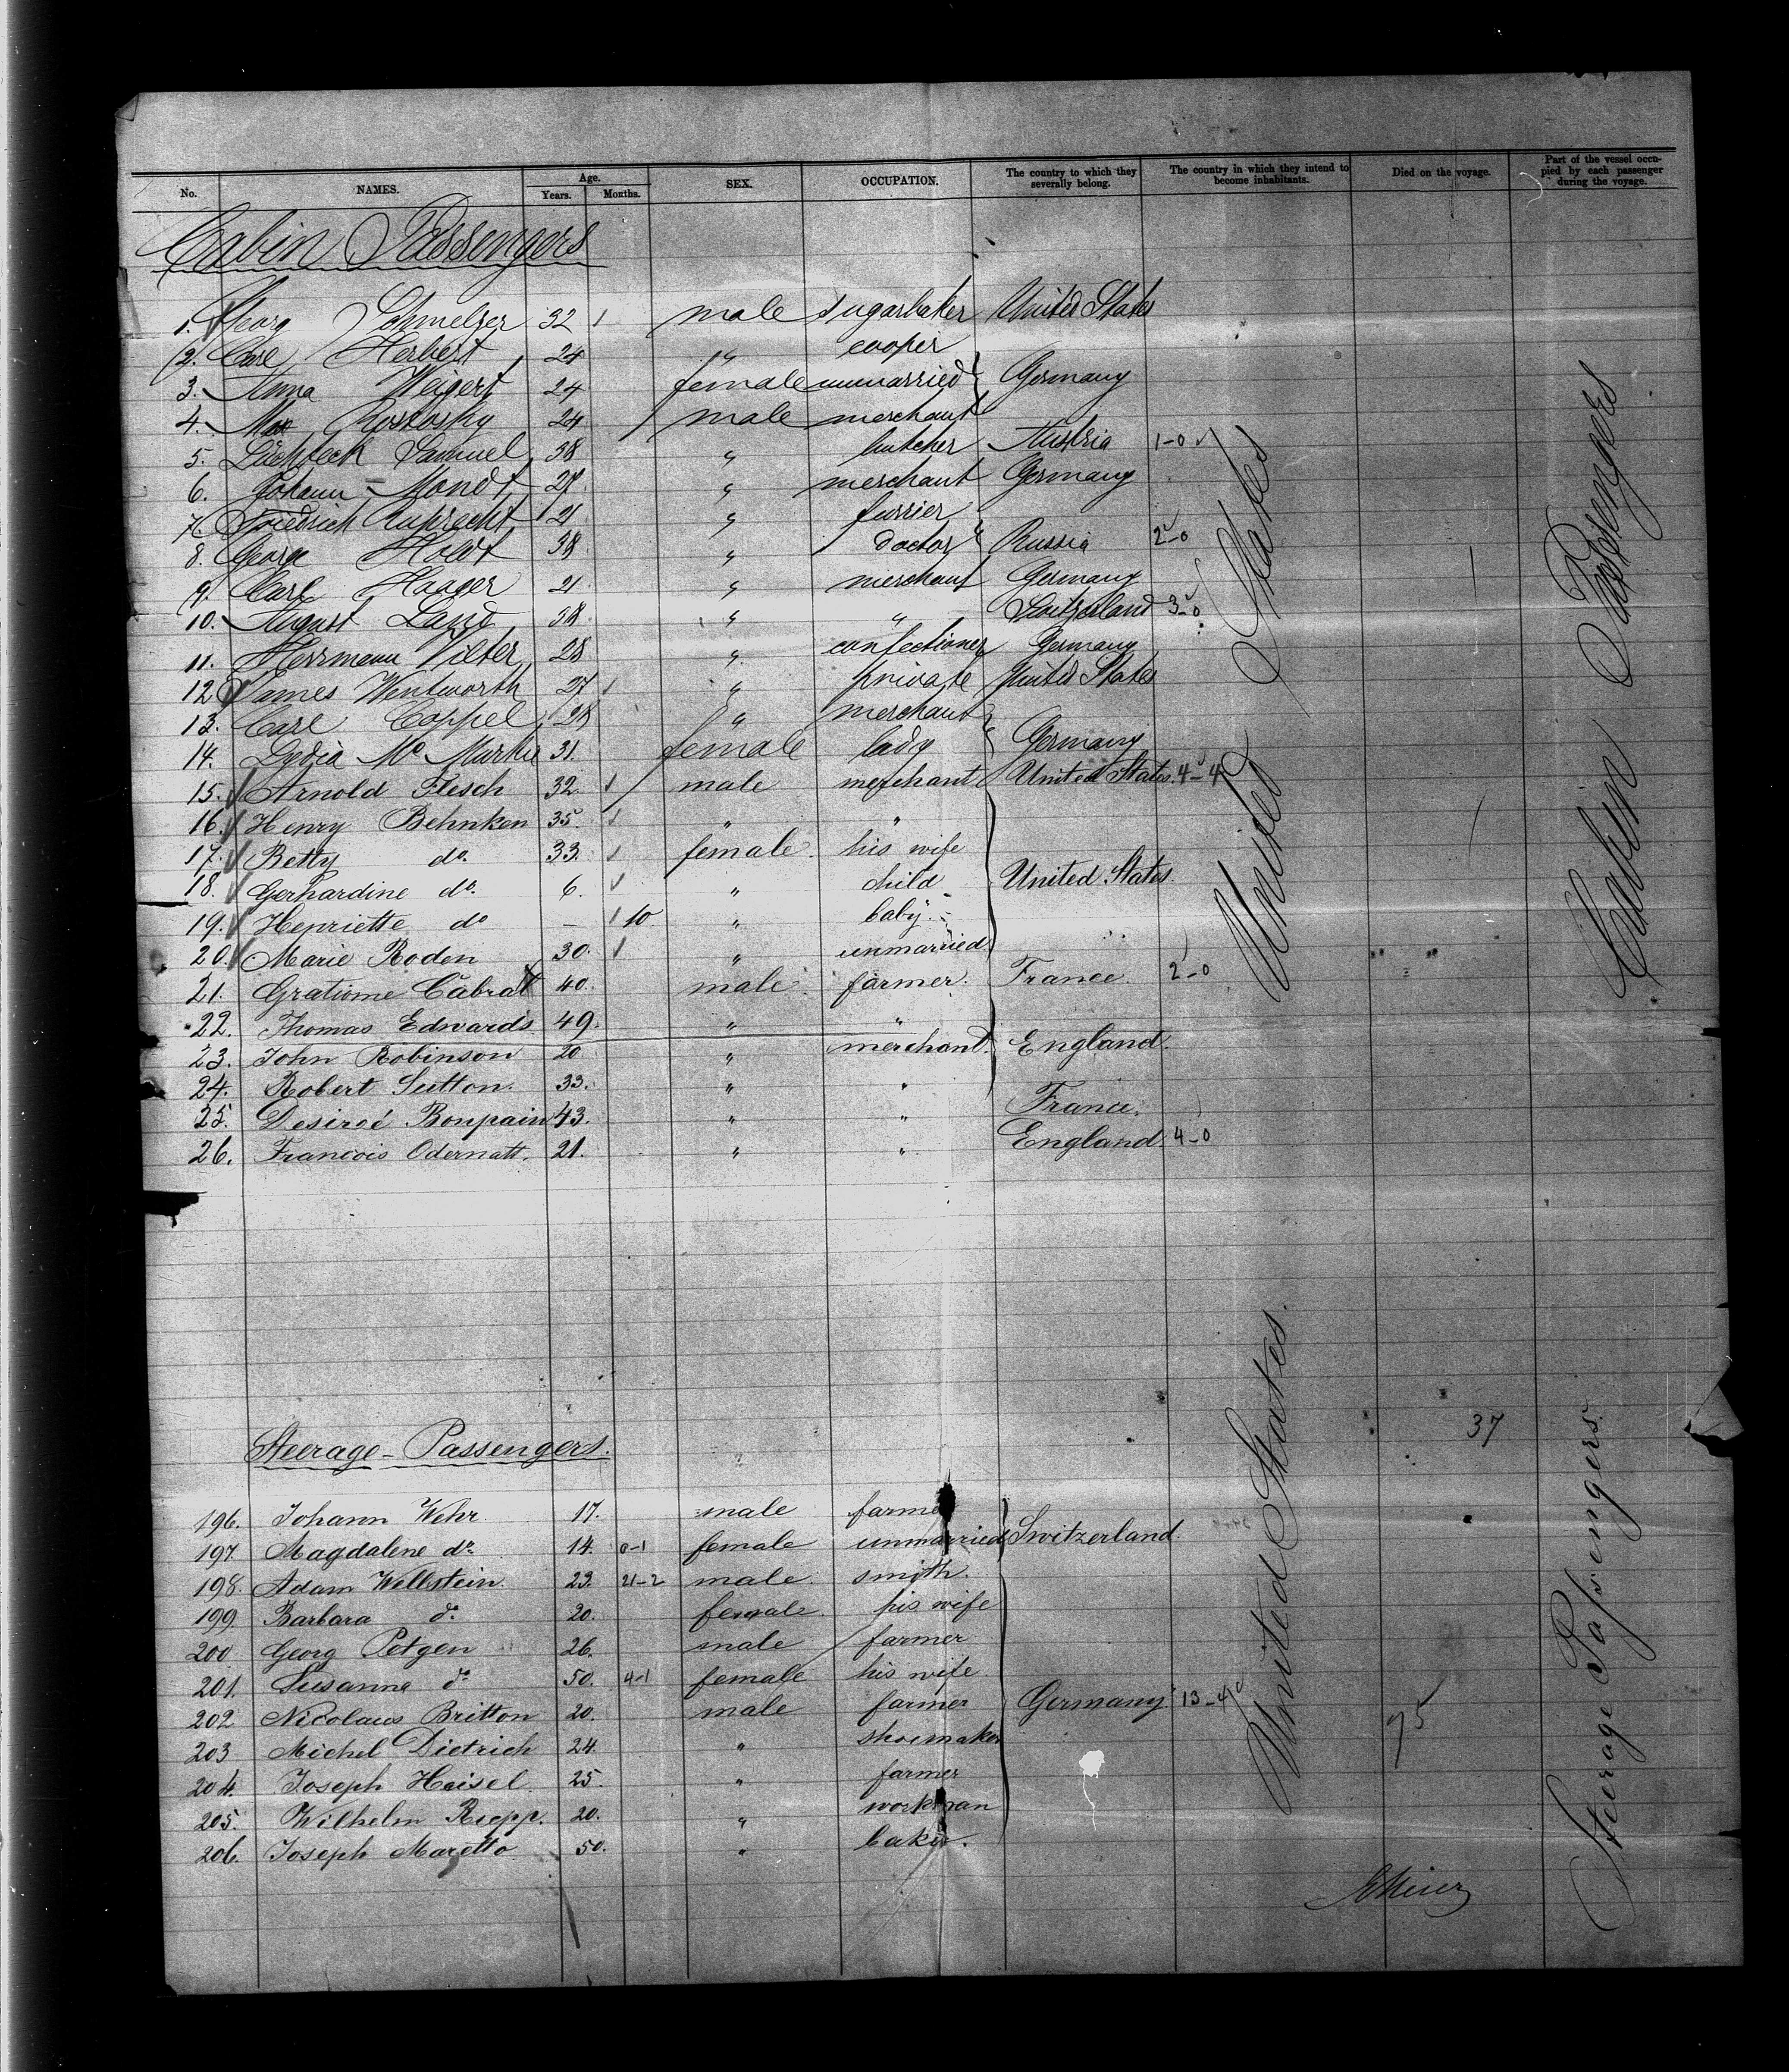 No. NAMES. Age. Years. Months. SEX. OCCUPATION. The country to which they severally belong. The country in which they intend to become inhabitants. Died on the voyage. Part of the vessel occupied by each passenger during the voyage.
Cabin Passengers
1. Georg Schmelzer 32 male sugarbaker United States
2. Carl Herbert 24 " cooper
3. Anna Weigert 24 female unmarried Germany
4. Max Roskosky 24 male merchant
5. Samuel 38 " butcher Austria 1-0
6. Johann Mondt 27 " merchant Germany
7. Friedrich Ruprecht 21 " furrier
8. Georg Holdt 38 " doctor Russia 2-0
9. Carl Haager 21 " merchant Germany
10. August Land 38 " " Switzerland 3-0
11. Herrmann Vilter 28 " confectioner Germany
12. James Wentworth 27 " private United States
13. Carl Coppel 28 " merchant
14. Lydia Mc 31. female lady Germany
15. Arnold Flesch 32. male merchant United States 4-4
16. Henry Behnken 35. " "
17. Betty do. 33. female. his wife
18. Gerhardine do. 6. " child United States
19. Henriette do - 10 " baby.
20. Marie Roden 30. " unmarried
21. Gratiome Cabrat 40. male. farmer. France. 2-0
22. Thomas Edwards 49. " "
23. John Robinson 20 " merchant. England.
24. Robert Sutton. 33. " "
25. Desireé Bonpain 43. " " France.
26. Francois Odernatt. 21. " " England 4-0
United States
Cabin Passengers
Steerage-Passengers.
37
196. Johann Wehr 17. male farmer
197. Magdalene do. 14. 0-1 female unmarried Switzerland.
198. Adam Wellstein 23. 21-2 male. smith.
199. Barbara do. 20. female. his wife
200 Georg Petgen 26. male farmer
201. Susanna do 50. 4-1 female his wife
202 Nicolaus Britton 20. male farmer Germany. 13-4
203 Michel Dietrich 24. " shoemaker
204. Joseph Heisel. 25. " farmer
205. Wilhelm Riepp. 20. " workman
206. Joseph Maretto 50. " baker.
United States.
75
Steerage Passengers.